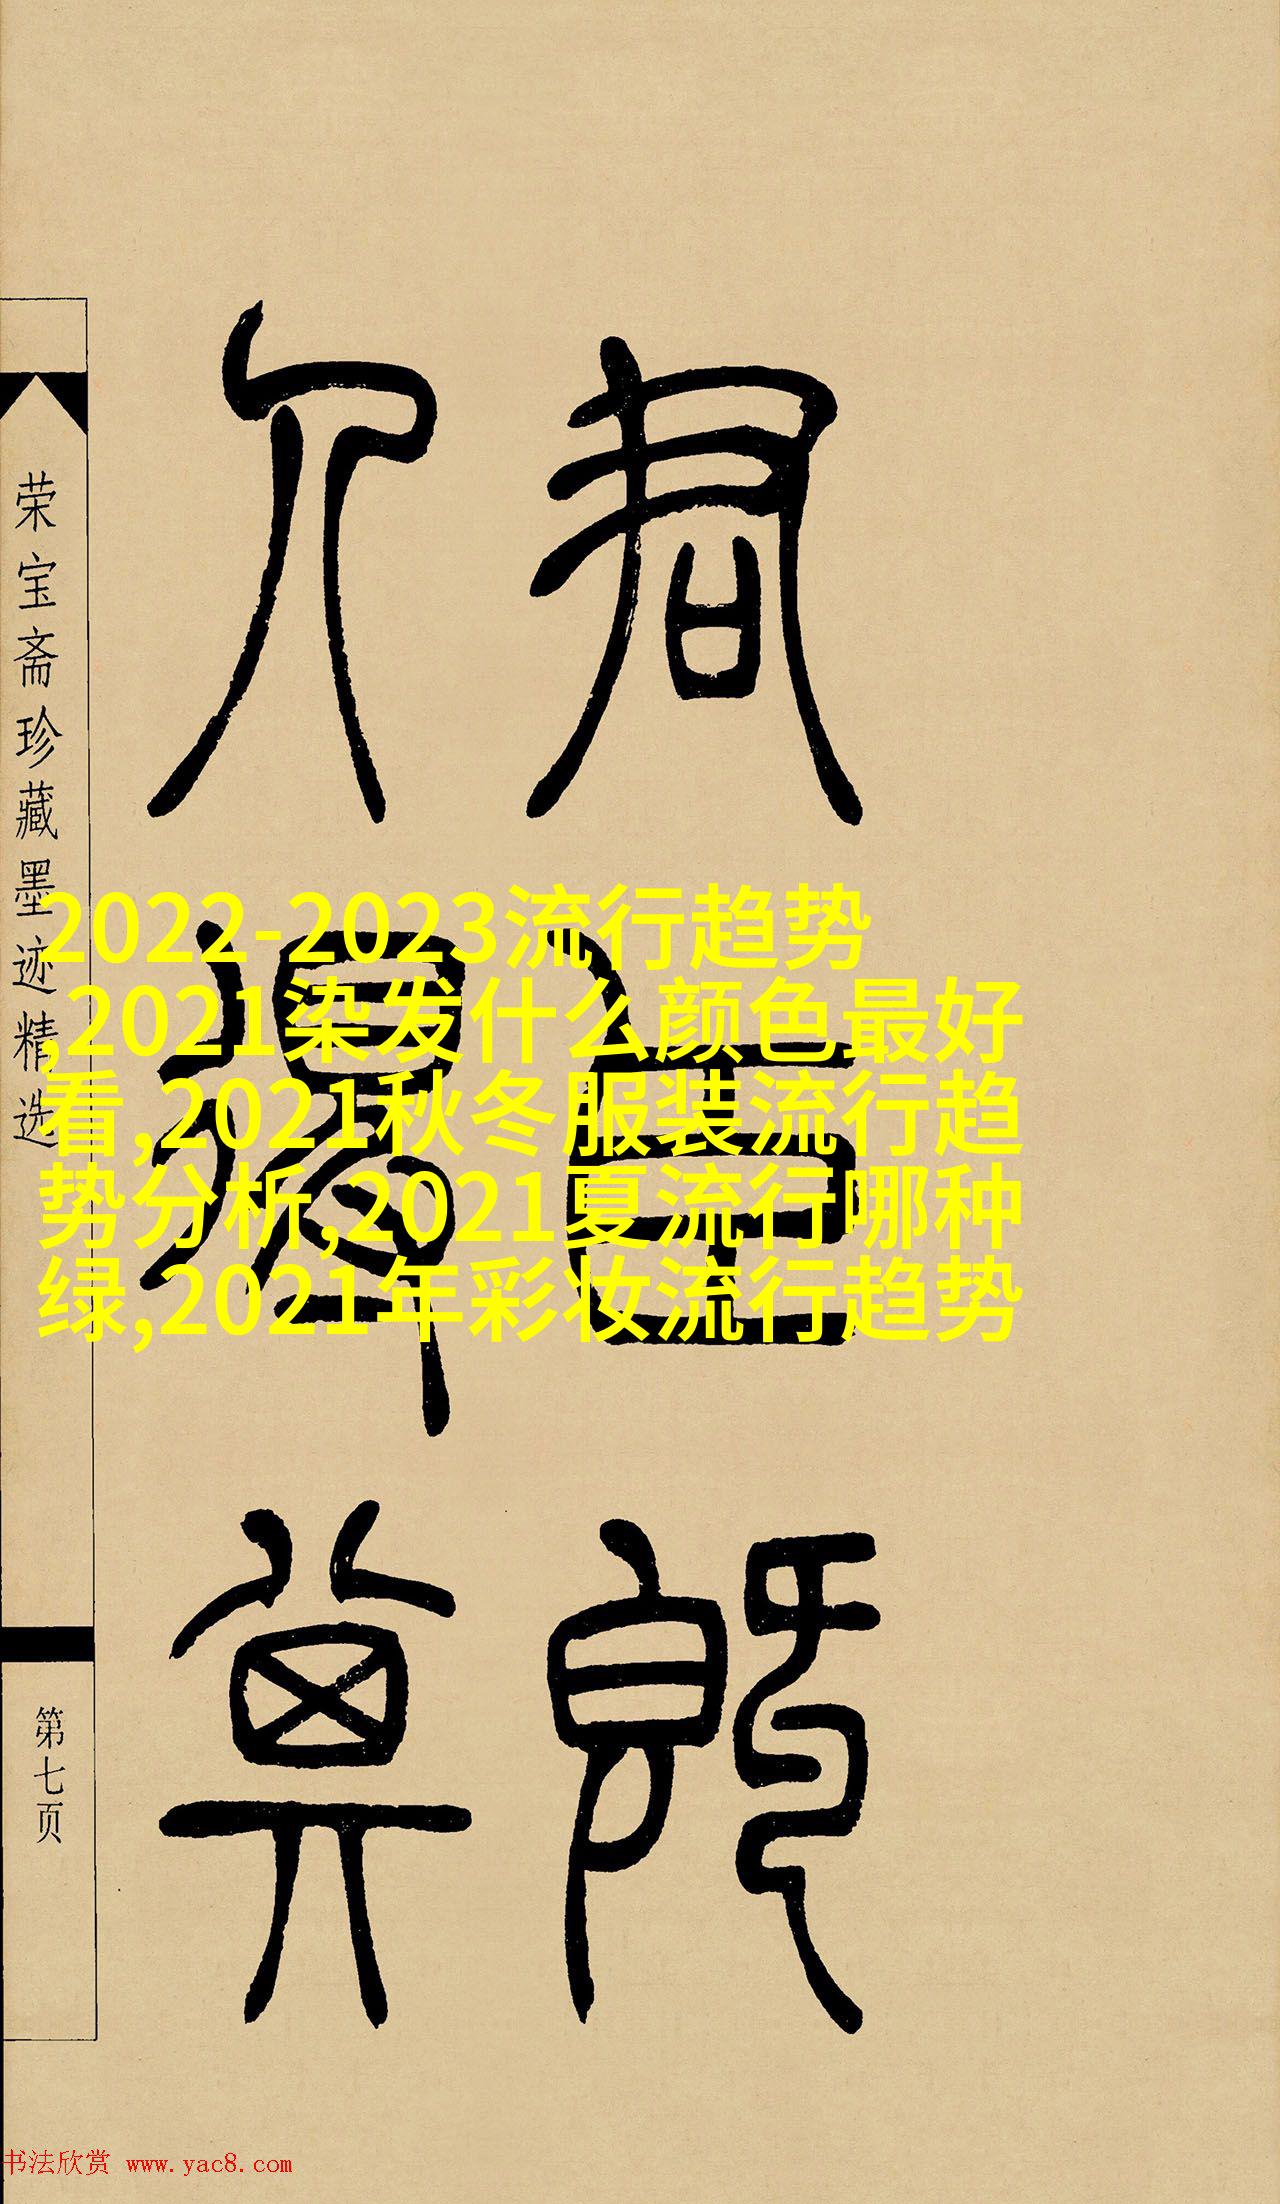 君言既
得其
荣宝斋珍藏墨迹精选
第七页
2022-2023流行趋势
,2021染发什么颜色最好
看,2021秋冬服装流行趋
势分析,2021夏流行哪种
绿,2021年彩妆流行趋势
书法欣赏 www.yac8.com